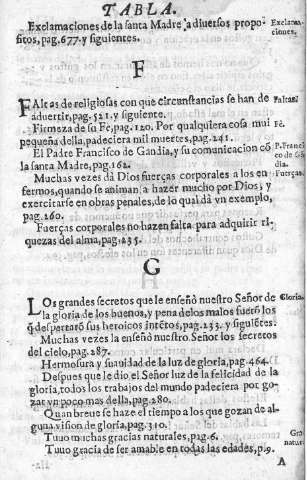 TABLA.
Exclamaciones de la santa Madre a diuersos propo- Exclama-
sitos, pag. 677. y siguientes. ciones.
F
FAltas de religiosas con que circunstancias se han de Faltas.
aduertir, pag. 521. y siguiente.
Firmeza de su Fè, pag. 120. Por qualquiera cosa mui Fè.
pequeña della, padeciera mil muertes, pag. 241.
El Padre Francisco de Gandia, y su comunicacion cõ P. Franci
la santa Madre, pag. 162.
Muchas vezes dà Dios fuerças corporales a los en Fuerças.
fermos, quando se animan a hazer mucho por Dios, y
exercitarse en obras penales, de lo qual dà vn exemplo,
pag. 260.
Fuerças corporales no hazen falta para adquirir ri-
quezas del alma, pag. 235.
G
LOs grandes secretos que le enseñò nuestro Señor de Gloria.
la gloria de los buenos, y pena delos malos fuerõ los
q̃ despertarõ sus heroicos intẽtos, pag. 233. y siguiẽtes.
Muchas vezes la enseñò nuestro Señor los secretos
del cielo, pag. 287.
Hermosura y suauidad de la luz de gloria, pag. 464.
Despues que le dio el Señor luz de la felicidad de la
gloria, todos los trabajos del mundo padeciera por go-
zar vn poco mas della, pag. 280.
Quan breue se haze el tiempo a los que gozan de al-
guna vision de gloria, pag. 310.
Tuuo muchas gracias naturales, pag. 6. Gra
Tuuo gracia de ser amable en todas las edades, p. 9. natur
A